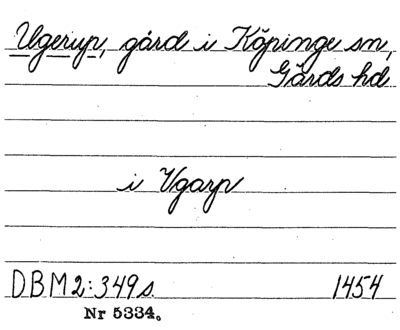 Ugerup, gård i Köpinge sn,
Gärds hd
i Vgarp
DBM 2:349 s 1454
Nr 5334.